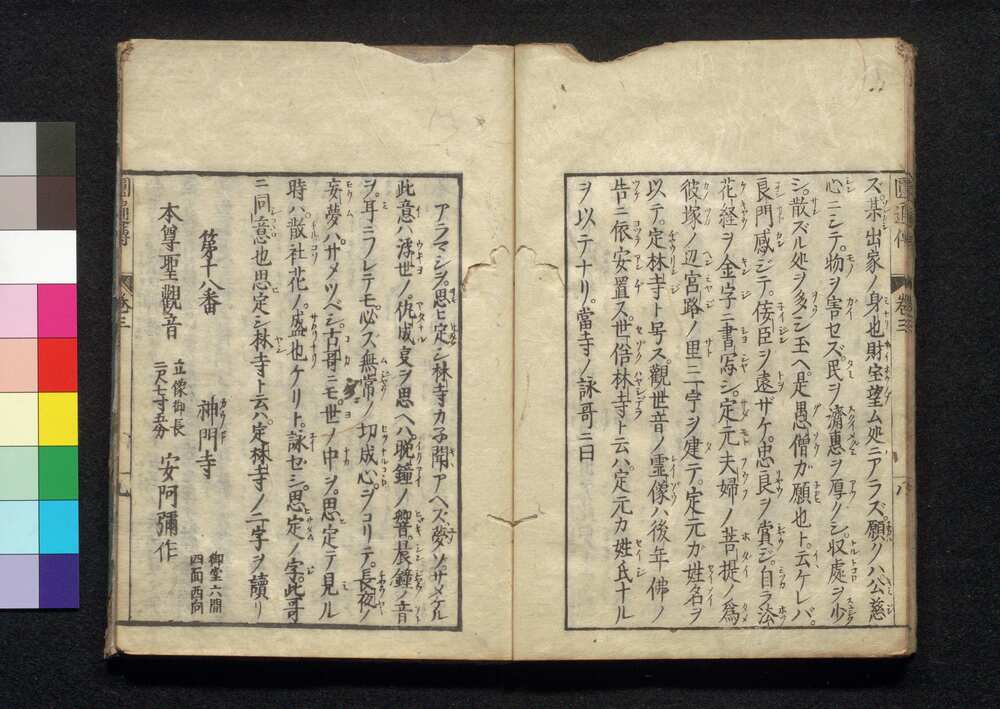 ズ某出家ノ身也財宝望ム処ニアラズ願ノハ公慈
心ニシテ物ヲ害セズ民ヲ済惠ヲ厚ノシ収處ヲ少
シ散ズル処ヲ多シ玉へ是愚僧ガ願也ト云ケレバ
良門感ジテ侫臣ヲ遠ザケ忠良ヲ賞ジ自ラ法
花経ヲ金字ニ書写シ定元夫婦ノ菩提ノ為
彼塚ノ辺宮路ノ里ニ一宇ヲ建テ定元ガ姓名ヲ
以テ定林寺ト号ス觀世音ノ霊像ハ後年佛ノ
告ニ依安置ス世俗林寺ト云ハ定元カ姓氏ナル
ヲ以テナリ當寺ノ詠哥ニ曰
圓通傳 巻三 八
アラマシヲ思ヒ定シ林寺カ子聞アヘズ夢ゾサメケル
此意ハ浮世ノ仇成夏ヲ思ヘバ晩鐘ノ響晨鐘ノ音
ヲ耳ニフレテモ必ズ無常ノ切成心ヲコリテ長夜ノ
妄夢ハサメツベシ古哥ニモ世ノ中ヲ思定テ見ル
時ハ散社花ノ盛也ケリト詠ゼシ思定ノ字此哥
ニ同意也思定シ林寺ト云ハ定林寺ノ二字ヲ讀リ
第十八番 神門寺 御堂六間四面西向
本尊聖觀音 立像御長二尺七寸五分 安阿彌作
圓通傳 巻三 九